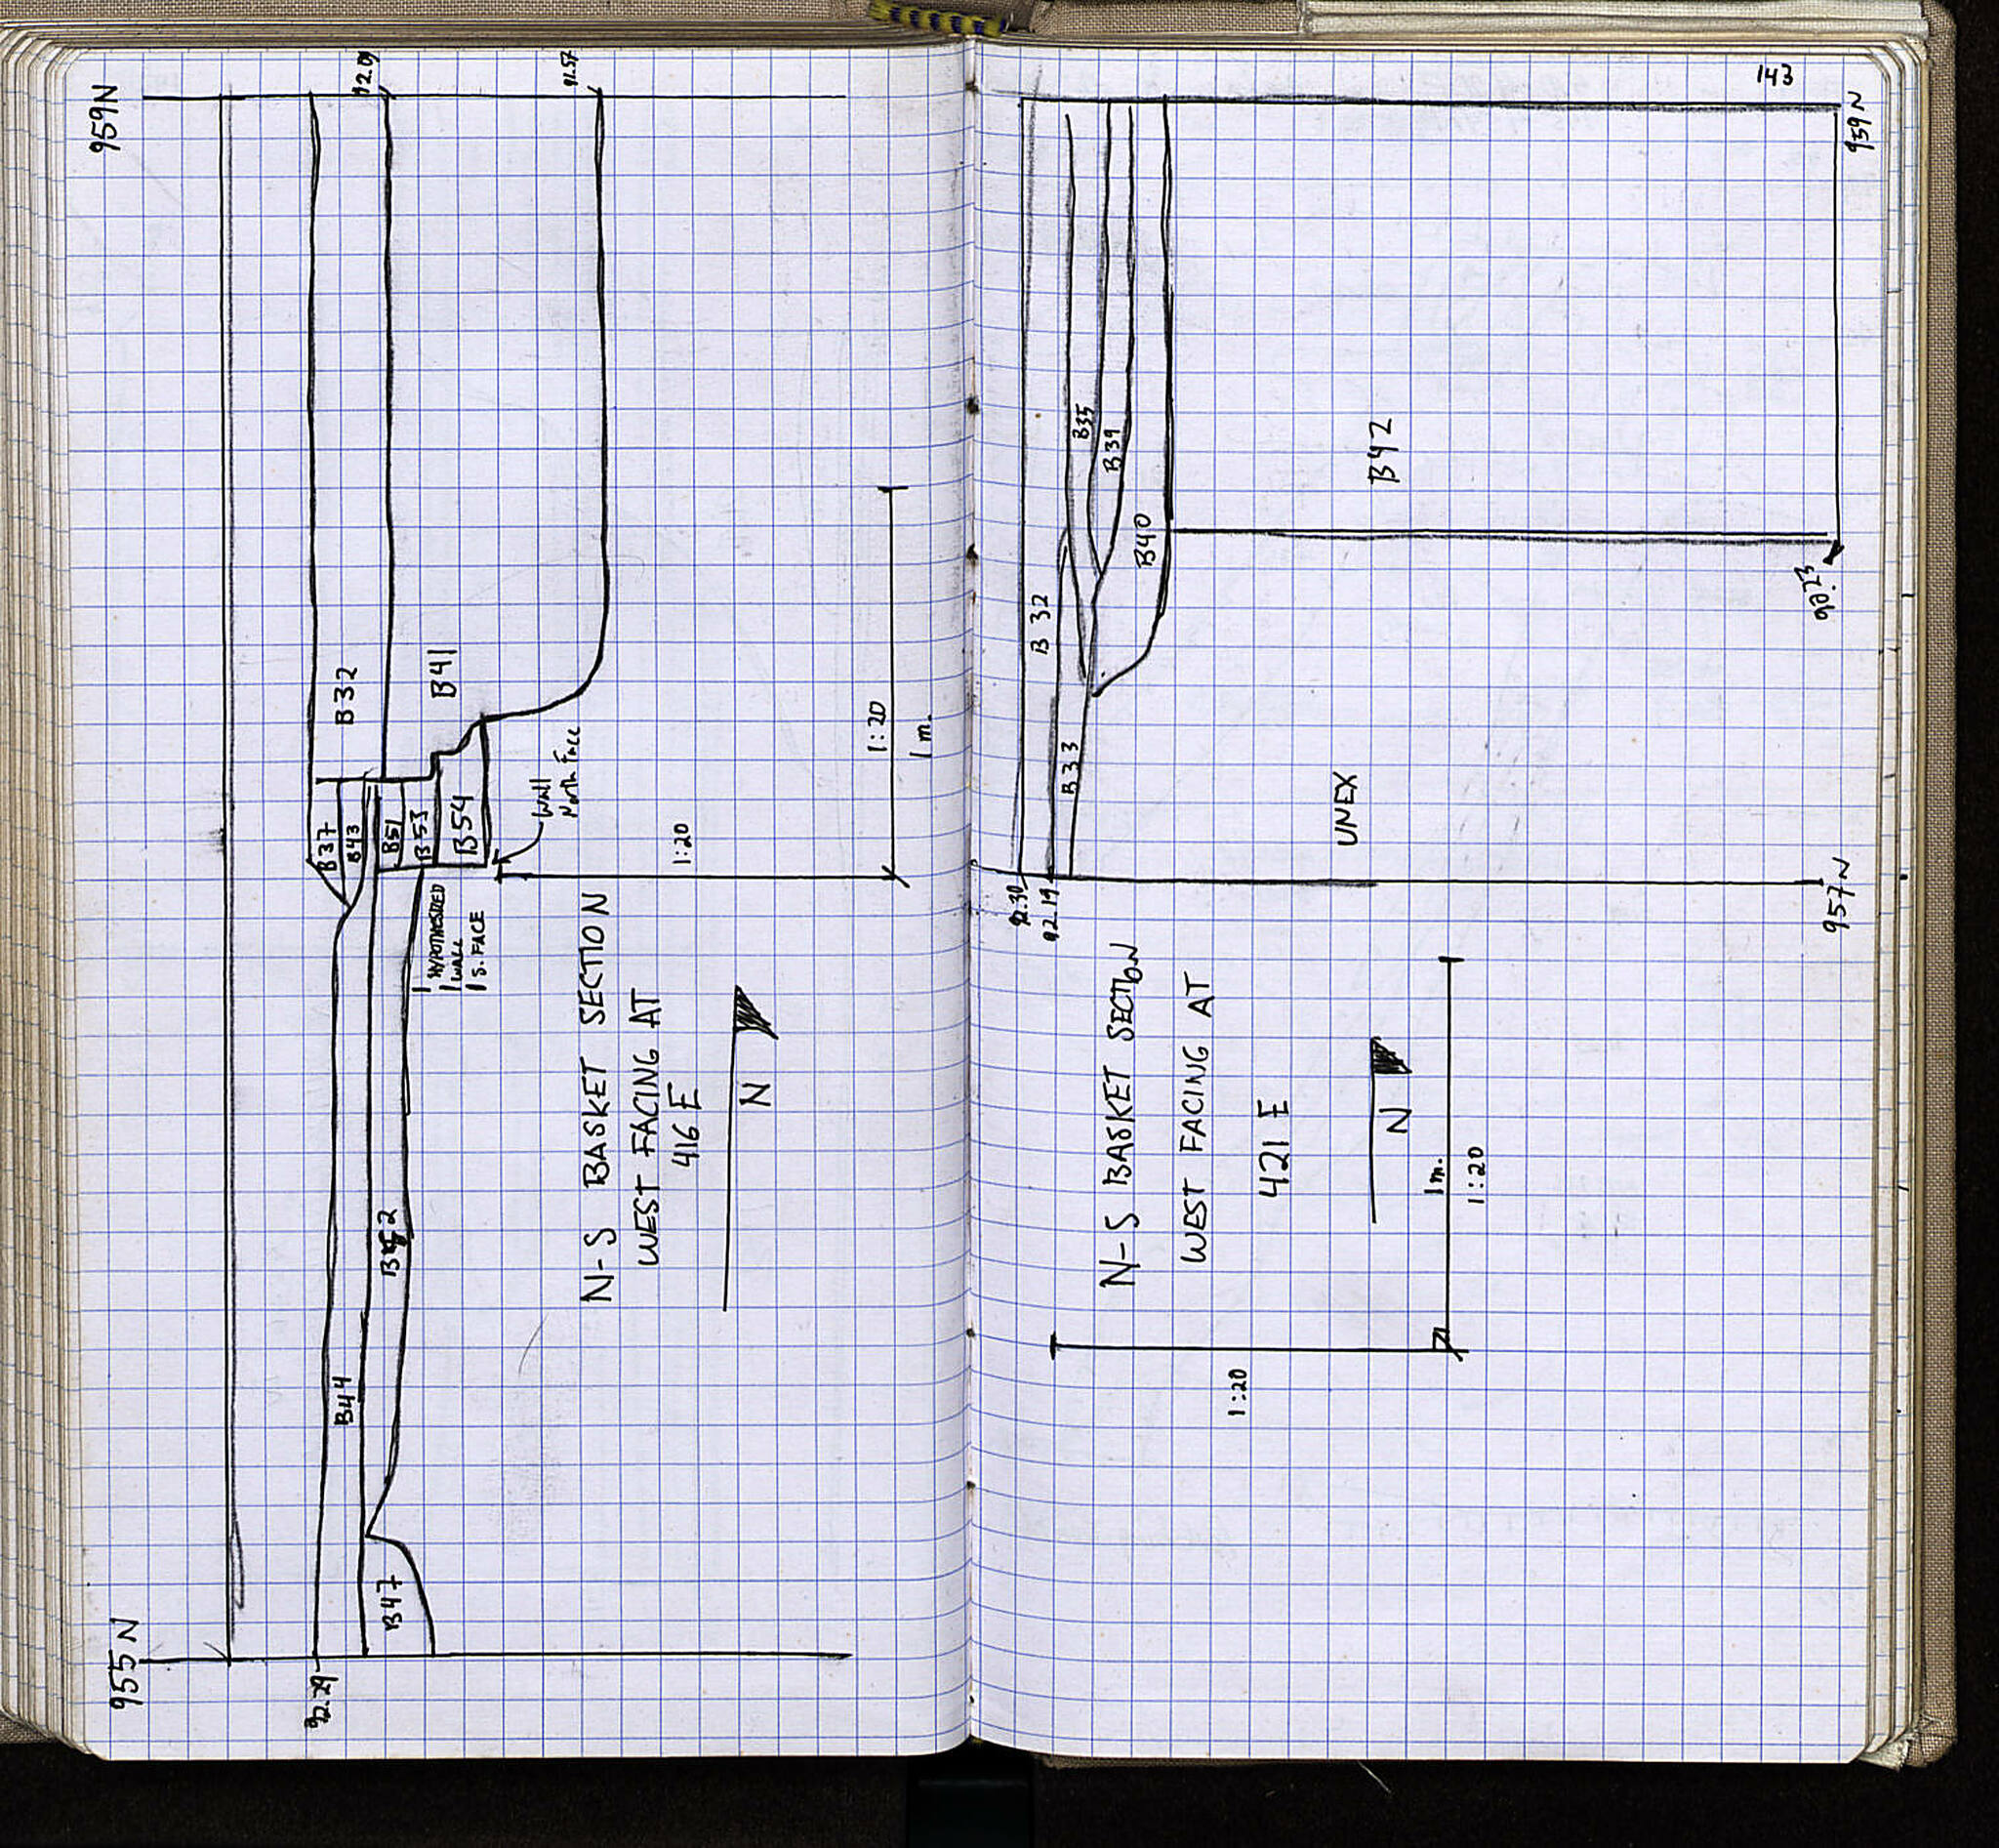 959N
92.09
91.57
B32
B41
B37
B43
B51
B53
B54
Wall
North Face
HYPOTHESIZED
WALL
S. FACE
B44
B52
B47
955 N
92.29
1:20
1 m.
1:20
N-S BASKET SECTION
WEST FACING AT
416 E
N
143
959 N
B35
B39
B40
B42
B 32
B33
90.23
UNEX
92.30
92.19
957 N
N-S BASKET SECTION
WEST FACING AT
421 E
N
1m.
1:20
1:20